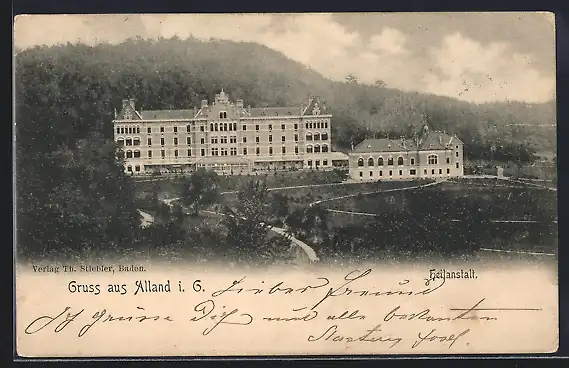 Verlag Th. Stiebler, Baden.
Heilanstalt.
Gruss aus Alland i. G. Lieber Freund
Ich grüße Dich und alle bekannten